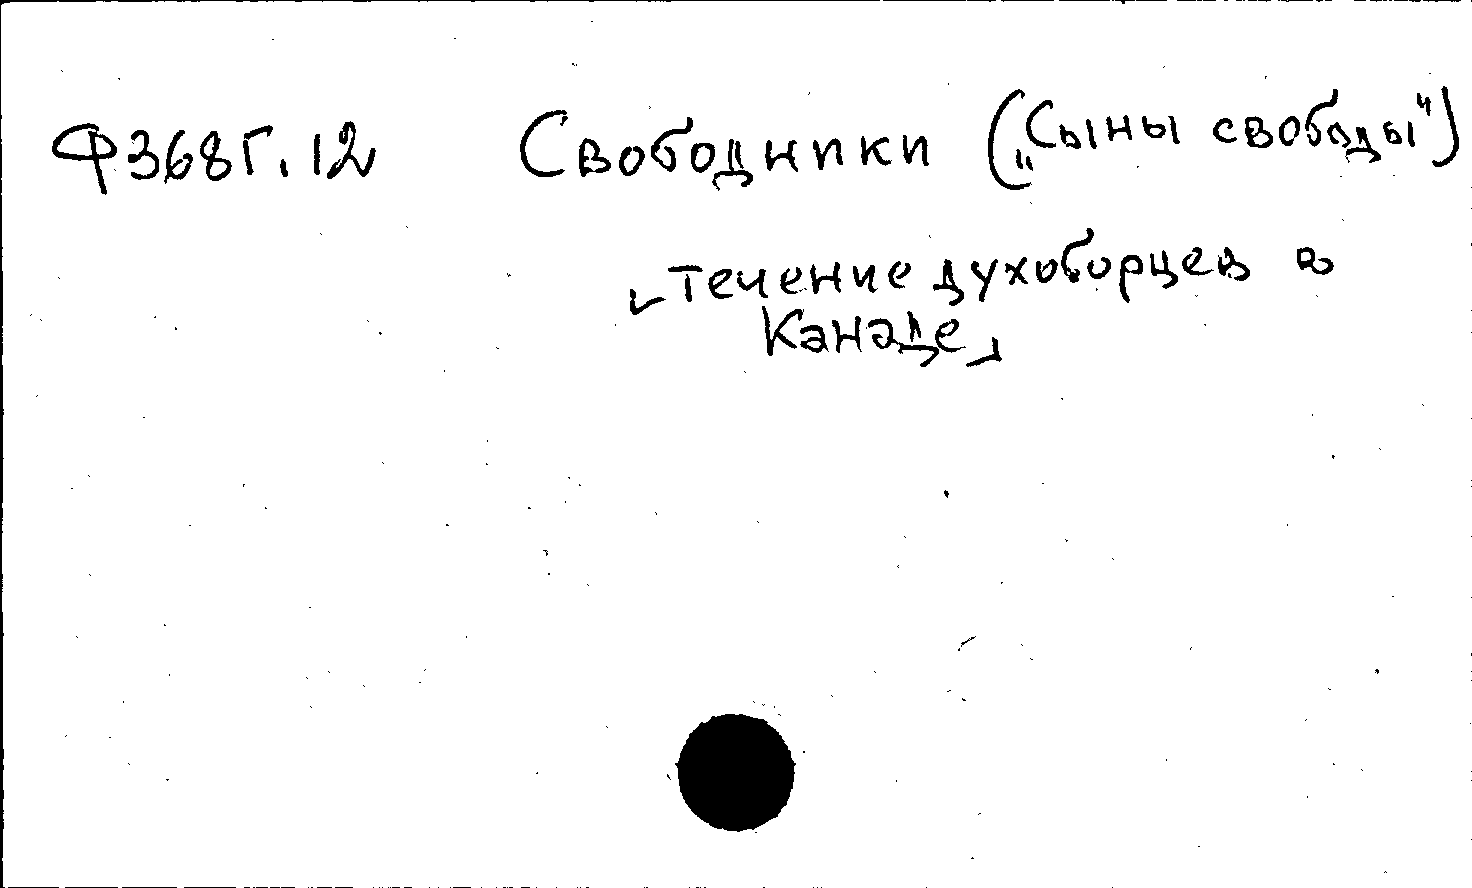 Ф368Г.12 Свободники („Сыны свободы“)
[течение духоборцев в
Канаде]